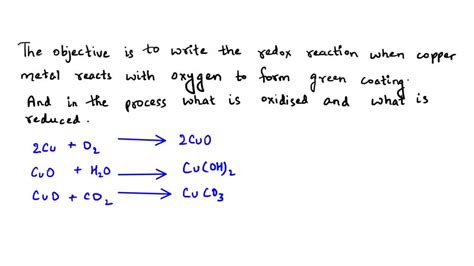 The objective is to write the redox reaction when copper
metal reacts with oxygen to form green coating.
And in the process what is oxidised and what is
reduced.
2Cu + O₂ ⟶ 2CuO
CuO + H₂O ⟶ Cu(OH)₂
CuO + CO₂ ⟶ CuCO₃